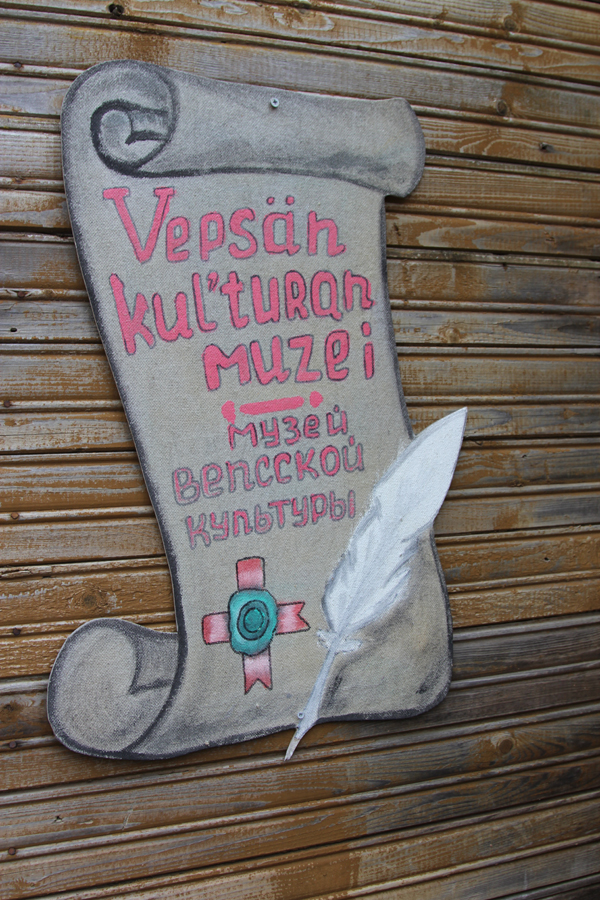 Vepsän
kul'turan
muzei
музей
вепсской
культуры